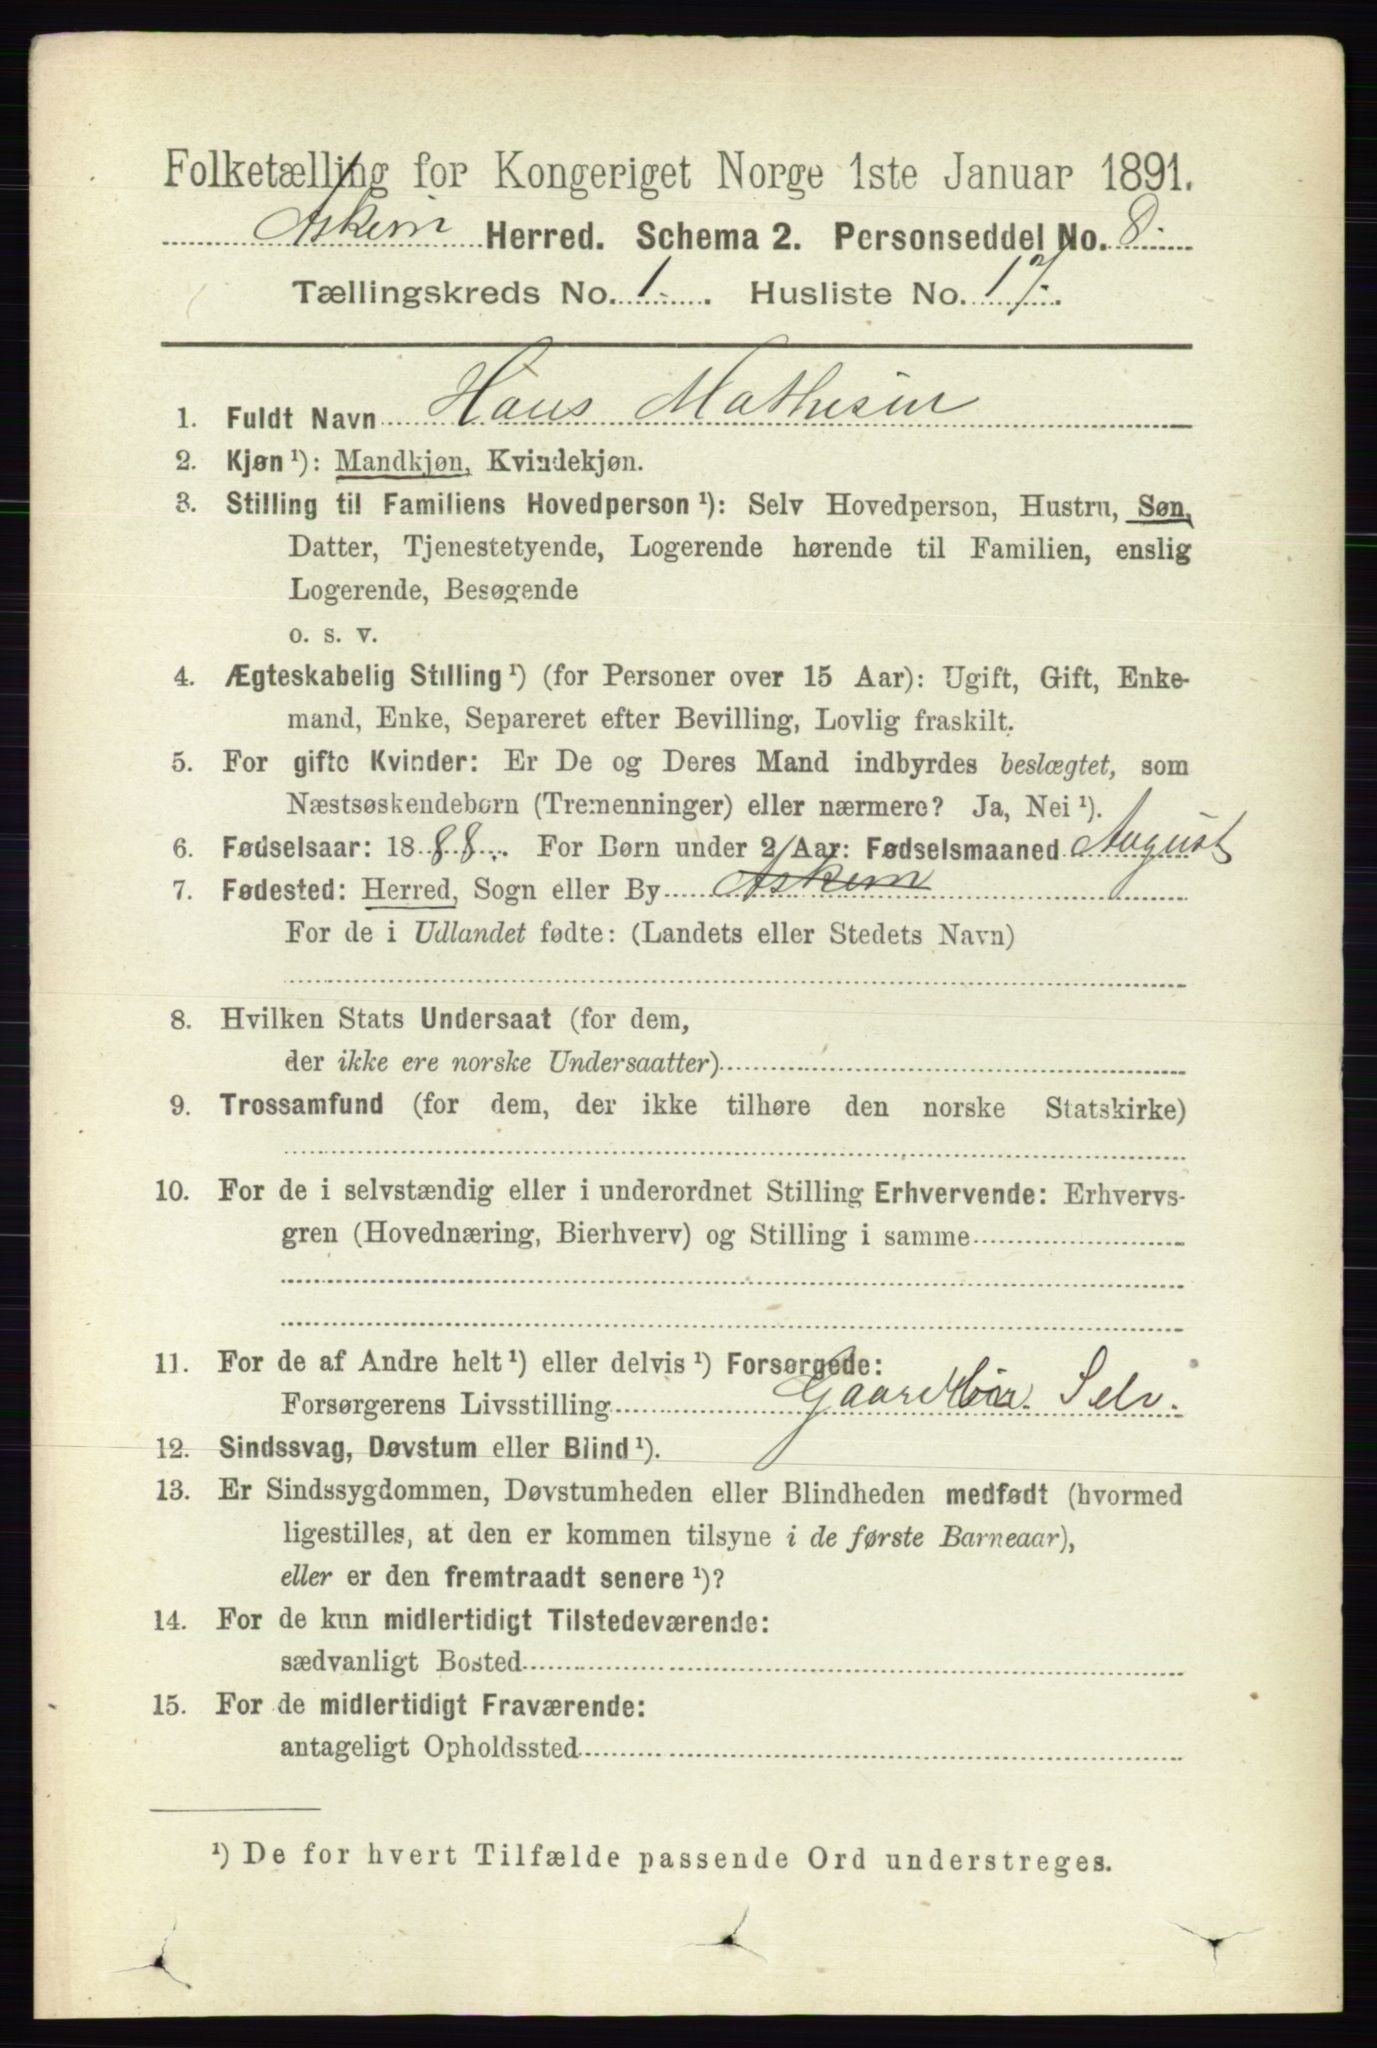 Folketælling for Kongeriget Norge 1ste Januar 1891.
Askim Herred. Schema 2. Personseddel No. 8.
Tællingskreds No. 1. Husliste No. 17.
1. Fuldt Navn Hans Mathisen
2. Kjøn¹): Mandkjøn, Kvindekjøn.
3. Stilling til Familiens Hovedperson¹): Selv Hovedperson, Hustru, Søn,
Datter, Tjenestetyende, Logerende hørende til Familien, enslig
Logerende, Besøgende
o. s. v.
4. Ægteskabelig Stilling¹) (for Personer over 15 Aar): Ugift, Gift, Enke-
mand, Enke, Separeret efter Bevilling, Lovlig fraskilt.
5. For gifte Kvinder: Er De og Deres Mand indbyrdes beslægtet, som
Næstsøskendebørn (Tremenninger) eller nærmere? Ja, Nei¹).
6. Fødselsaar: 1888. For Børn under 2 Aar: Fødselsmaaned August
7. Fødested: Herred, Sogn eller By Askim
For de i Udlandet fødte: (Landets eller Stedets Navn)
8. Hvilken Stats Undersaat (for dem,
der ikke ere norske Undersaatter)
9. Trossamfund (for dem, der ikke tilhøre den norske Statskirke)
10. For de i selvstændig eller i underordnet Stilling Erhvervende: Erhvervs-
gren (Hovednæring, Bierhverv) og Stilling i samme
11. For de af Andre helt¹) eller delvis¹) Forsørgede:
Forsørgerens Livsstilling Selv.
12. Sindssvag, Døvstum eller Blind¹).
13. Er Sindssygdommen, Døvstumheden eller Blindheden medfødt (hvormed
ligestilles, at den er kommen tilsyne i de første Barneaar),
eller er den fremtraadt senere¹)?
14. For de kun midlertidigt Tilstedeværende:
sædvanligt Bosted
15. For de midlertidigt Fraværende:
antageligt Opholdssted
¹) De for hvert Tilfælde passende Ord understreges.